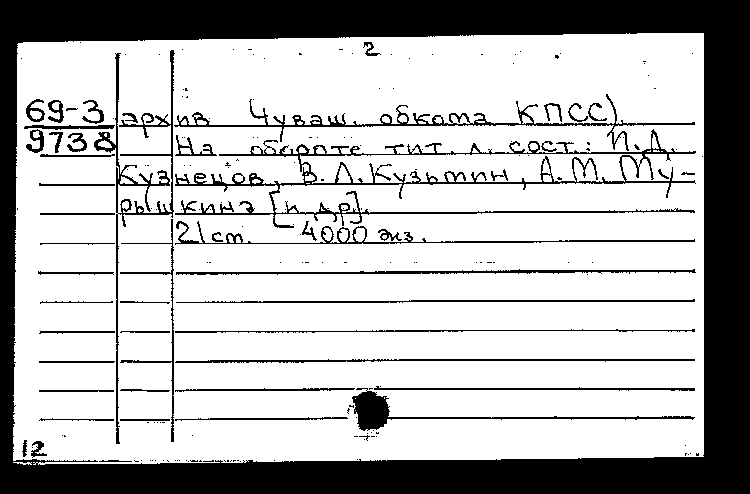 2
69-3 архив Чуваш. обкома КПСС).
9738 На обороте тит. л. сост.: И.Д.
Кузнецов, В.Л.Кузьмин, А.М. Му-
рышкина [и др].
21 cm. - 4000 экз.
12